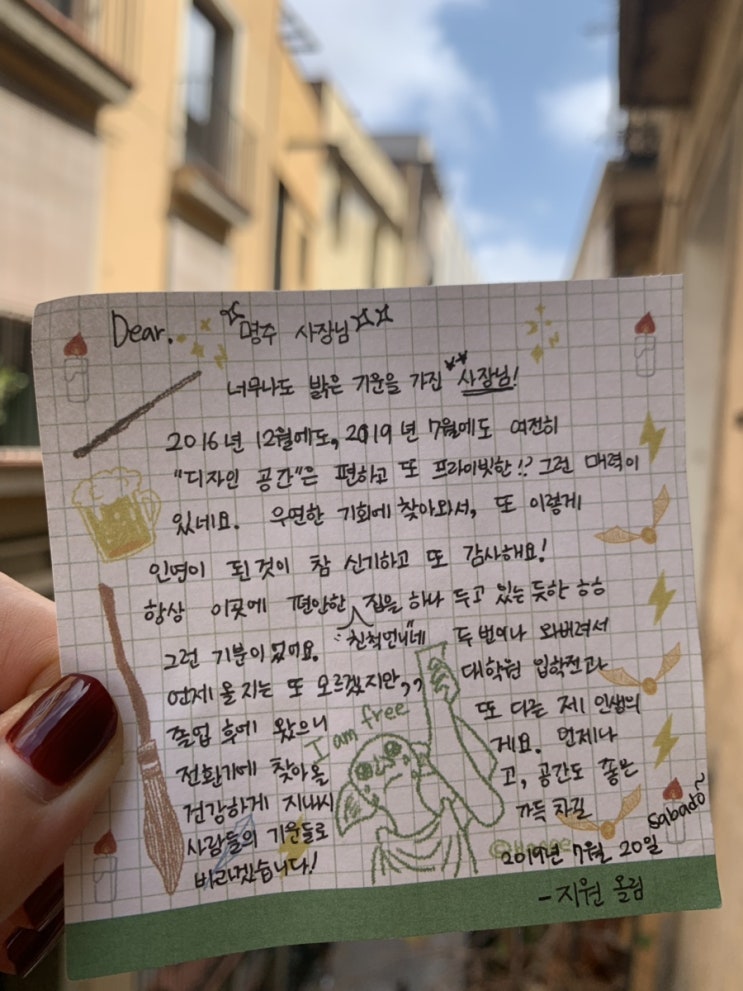 Dear. 명주 사장님
너무나도 밝은 기운을 가진 사장님!
2016년 12월에도, 2019년 7월에도 여전히
"디자인 공간"은 편하고 또 프라이빗한!? 그런 매력이
있네요. 우연한 기회에 찾아와서, 또 이렇게
인연이 된것이 참 신기하고 또 감사해요!
항상 이곳에 편안한 집을 하나 두고 있는 듯한 ㅎㅎ
친척언니네
그런 기분이었어요. 두번이나 와버려서
언제 올지는 또 모르겠지만,, 대학원 입학전과
졸업 후에 왔으니 또 다른 제 인생의
전환기에 찾아올게요. 언제나
건강하게 지내시고, 공간도 좋은
사람들의 기운들로 가득 차길
바라겠습니다!
I am free
sabado~
2019년 7월 20일
-지원 올림